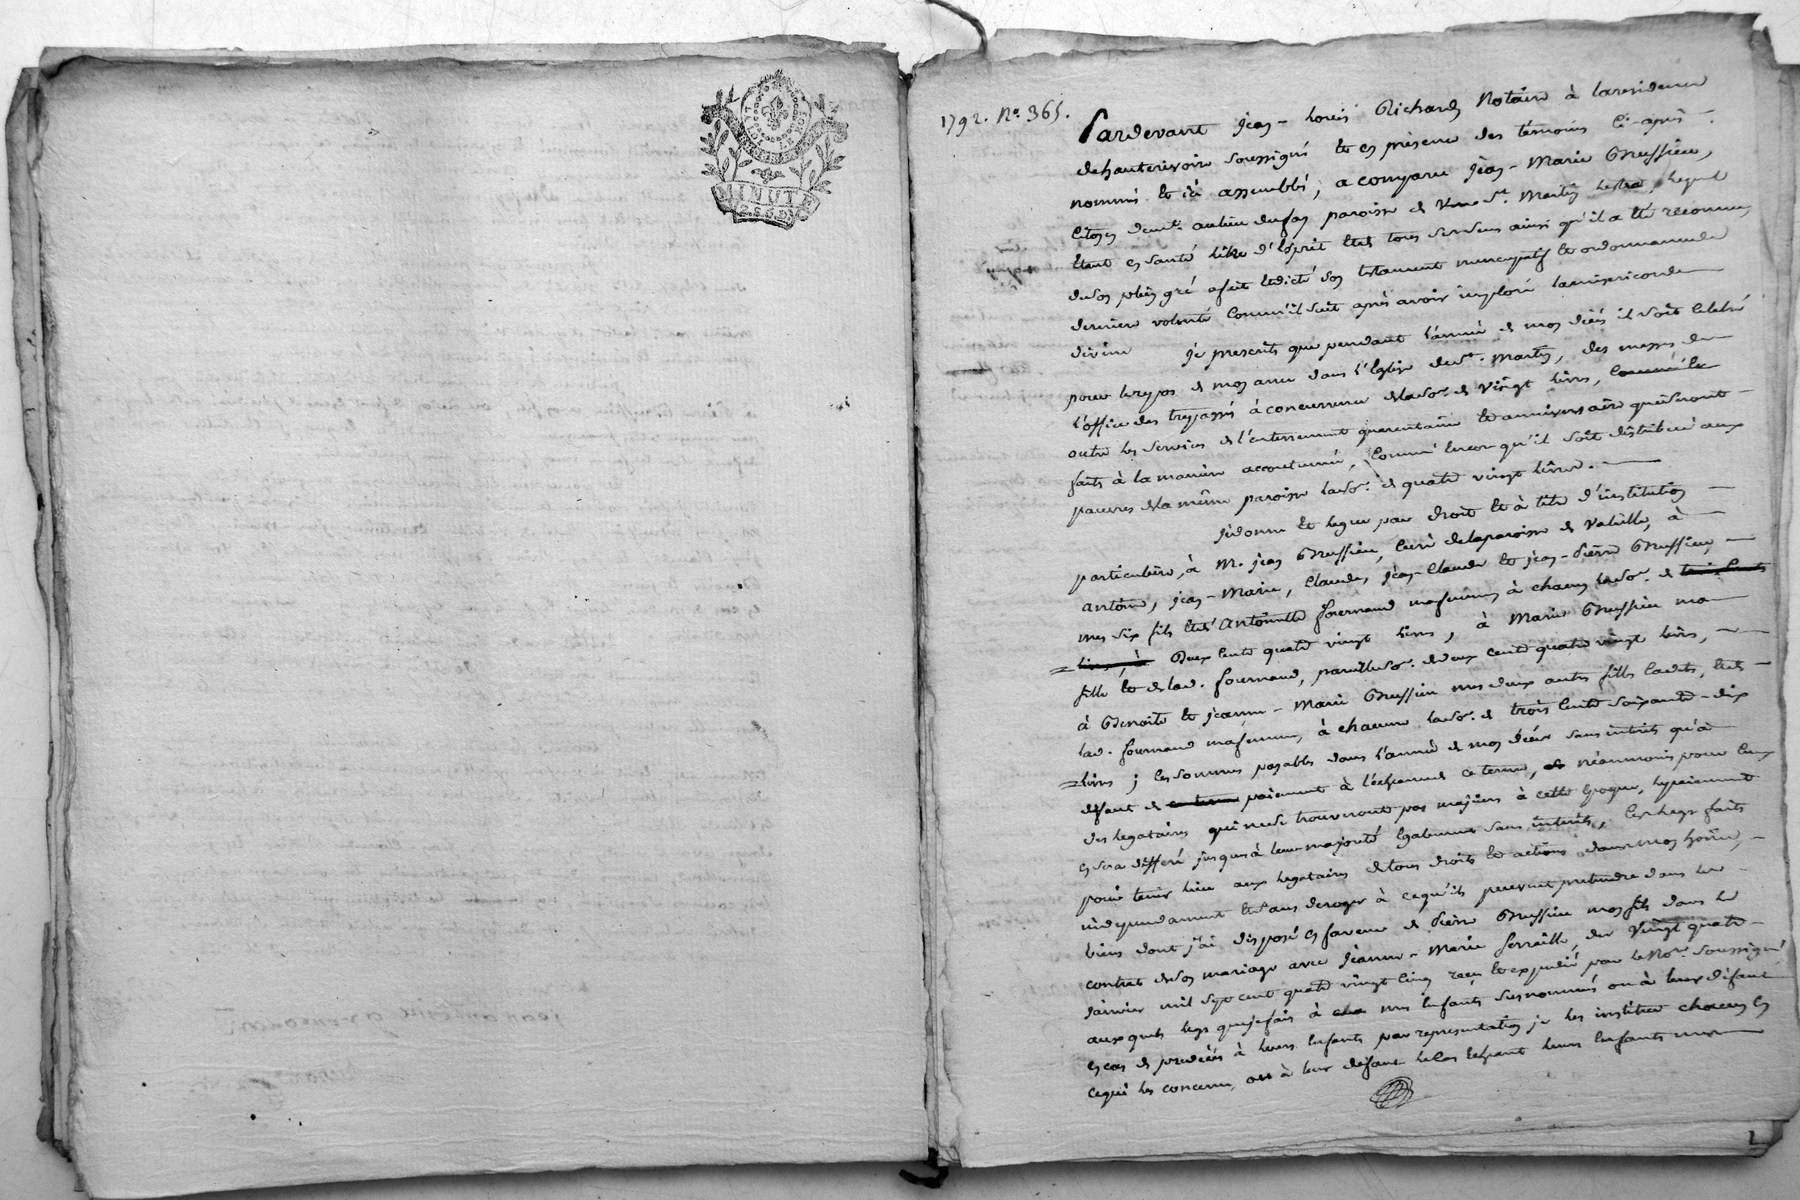 LA LOI ET LE ROI
MINUTE
1792. No. 365.
Pardevant Jean-Louis Richard Notaire à la residence
de hauterivoire soussigné et en présence des témoins ci-après
nommés et ici assemblés, a comparu Jean-Marie Grussieu,
Citoyen demt. au lieu du fay paroisse de St. Martin lestra, lequel
étant en santé libre d'Esprit et de tous ses sens ainsi qu'il a été reconnu,
de son plein gré a fait et dicté son testament nuncupatif et ordonnance de
derniere volonté comm'il suit après avoir imploré la misericorde
divine Je prescrits que pendant l'année de mon décès il soit celebré
pour le repos de mon ame dans l'Eglise de St. Martin, des messes de
l'office des trepassés à concurrence de la so. de vingt livres,
outre les services de l'enterrement quarantaine et anniversaire qui seront
faits à la manière accoutumée, comme encor qu'il soit distribué aux
pauvres de la même paroisse la so. de quatre vingt livres.
Je donne et legue par droit et à titre d'institution
particulière, à M. Jean Grussieu, curé de la paroisse de Valeille, à
antoine, Jean-Marie, Claude, Jean-Claude et Jean-Pierre Grussieu,
mes six fils et d'Antoinette fournand ma femme, à chacun la so. de trois cents
livres, à Deux cents quatre vingt livres, à Marie Grussieu ma
fille et de lad. fournand, pareille so. de deux cents quatre vingt livres,
à Benoite et Jeanne-Marie Grussieu mes deux autres filles cadettes, et de
lad. fournand ma femme, à chacune la so. de trois cents soixante-dix
livres; les sommes payables dans l'année de mon décès sans intérêts qu'à
défaut de ce terme paiement à l'échéance de ce terme, néanmoins pour ceux
des legataires qui ne se trouveront pas majeurs à cette époque, le paiement
en sera différé jusques à leur majorité egalement sans intérêts, ces legs faits
pour tenir lieu aux legataires de tous droits et actions dans mon hoirie,
independament et sans deroger à ce qu'ils peuvent pretendre dans les
biens dont j'ai disposé en faveur de Pierre Grussieu mon fils dans le
contrat de son mariage avec Jeanne-Marie ferraille, du vingt quatre
Janvier mil sept cent quatre vingt cinq recu et expedié par le No. soussigné,
auxquels legs que je fais à mes Enfants susnommés ou à leur défaut
en cas de predécès à leurs Enfants par representation je les institue chacun en
ce qui les concerne, ou à leur défaut le cas échéant leurs Enfants mes